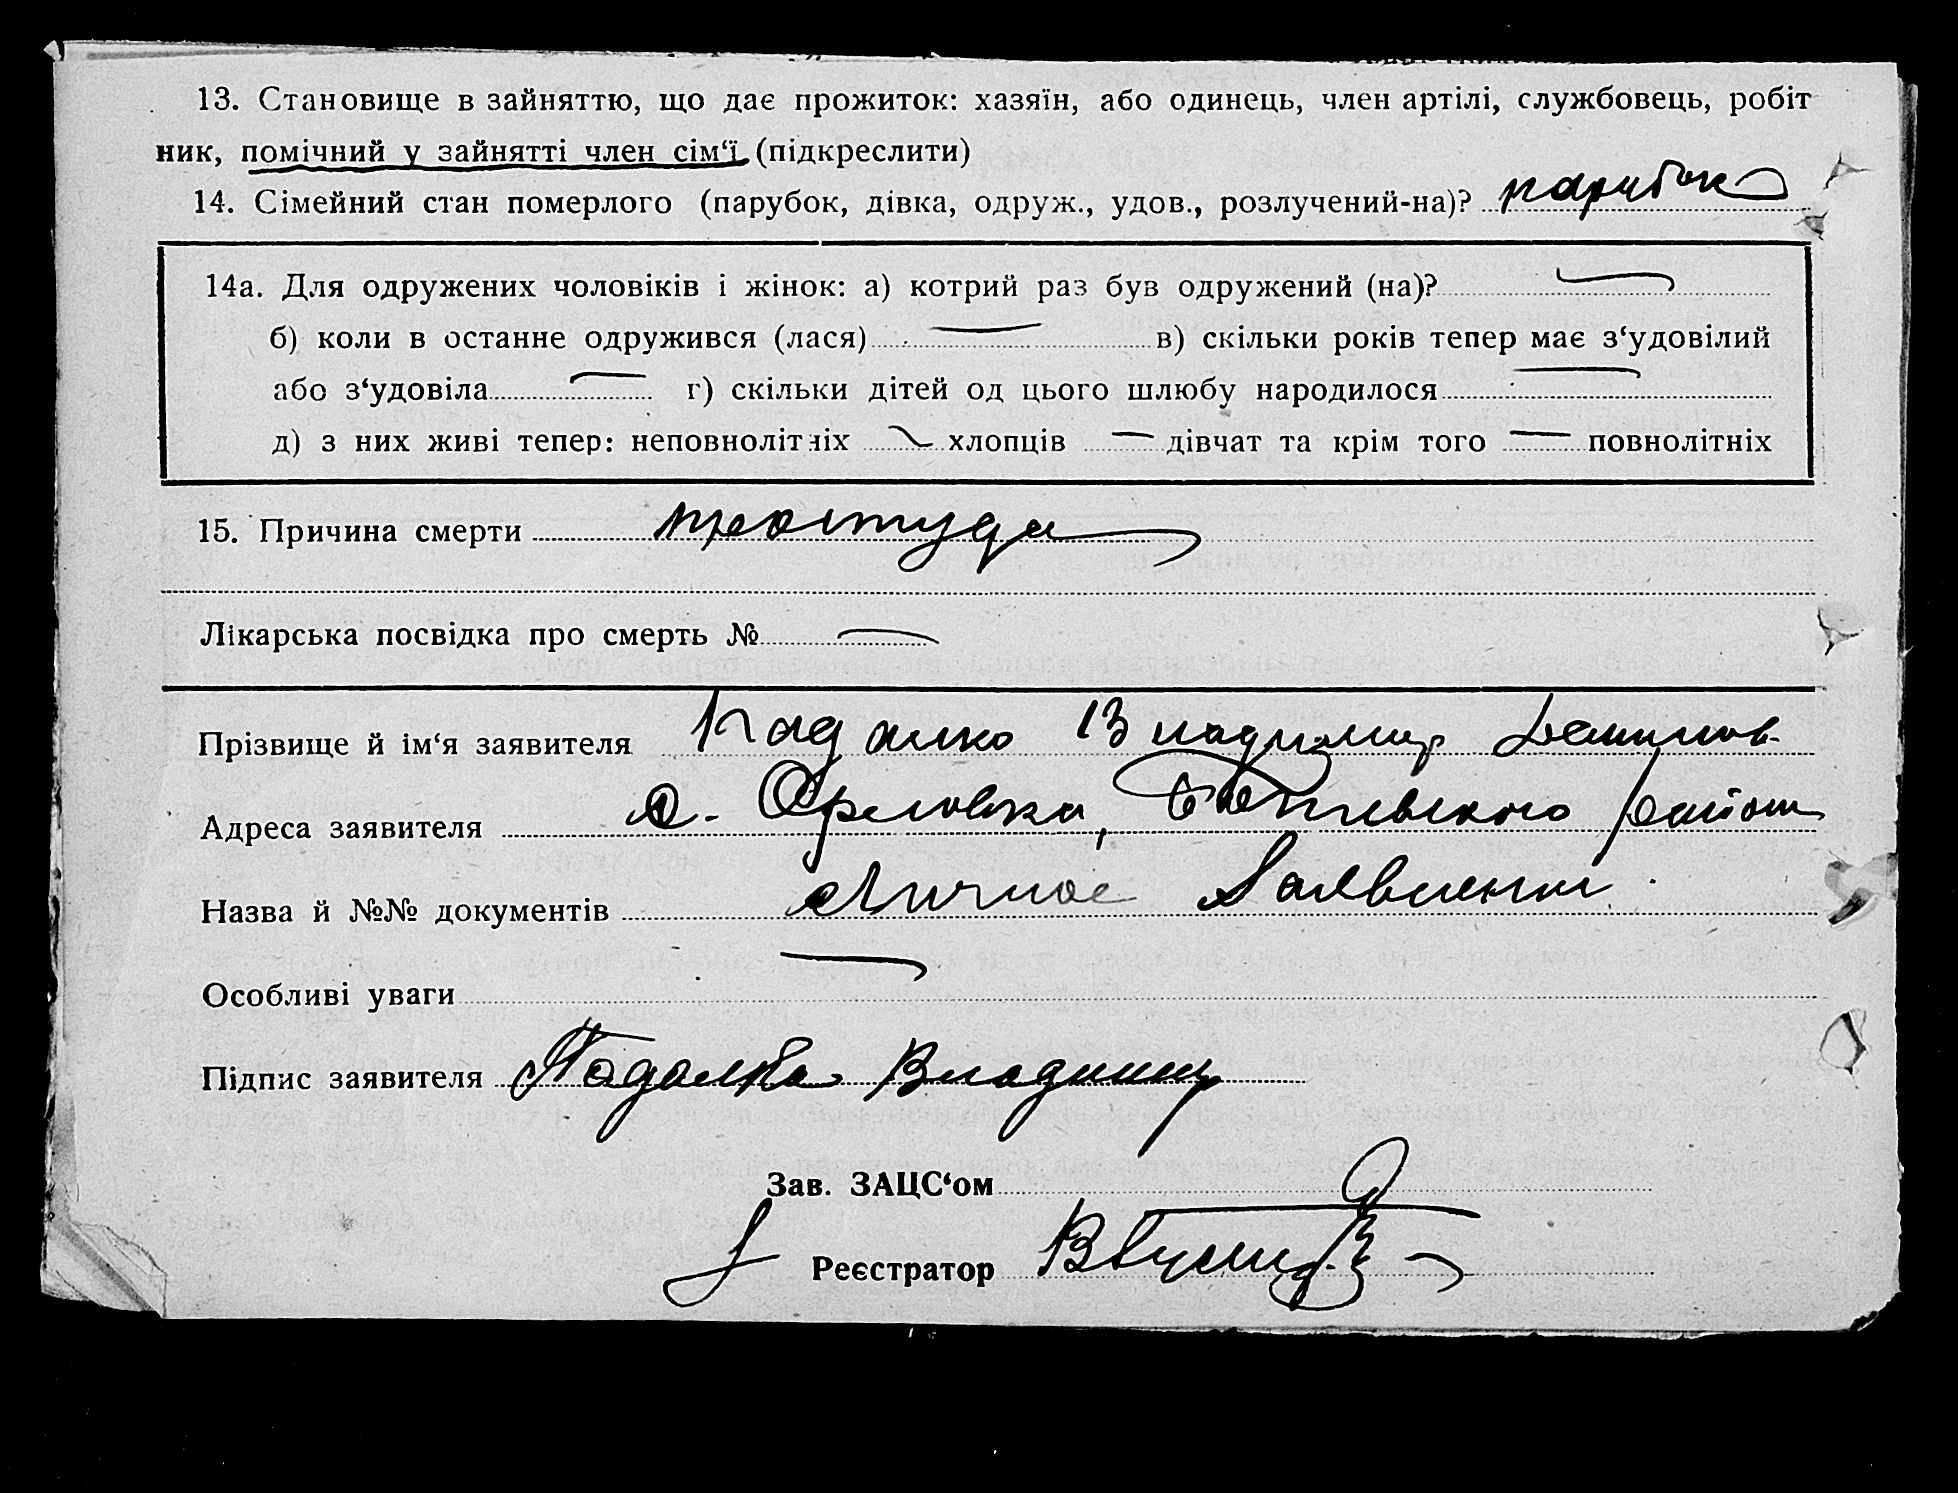 13. Становище в зайняттю, що дає прожиток: хазяїн, або одинець, член артілі, службовець, робіт
ник, помічний у зайнятті член сім‘ї (підкреслити)
14. Сімейний стан померлого (парубок, дівка, одруж., удов., розлучений-на)? парубок
14а. Для одружених чоловіків і жінок: а) котрий раз був одружений (на)?
б) коли в останне одружився (лася) в) скільки років тепер має з‘удовілий
або з‘удовіла г) скільки дітей од цього шлюбу народилося
д) з них живі тепер: неповнолітніх хлопців дівчат та крім того повнолітніх
15. Причина смерти простуда
Лікарська посвідка про смерть №
Прізвище й ім‘я заявителя Владимир
Адреса заявителя с. Орловка, района
Назва й №№ документів Личное Заявление
Особливі уваги
Підпис заявителя Подалка Владимир
Зав. ЗАЦС‘ом
Реєстратор